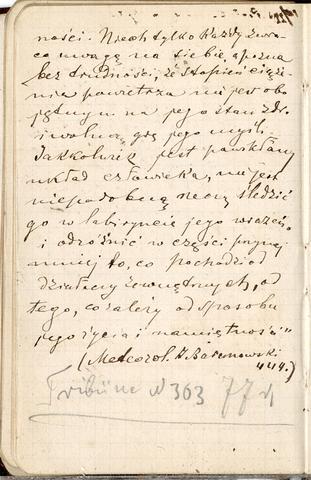 ności. Niech tylko każdy zwra-
ca uwagę na siebie, a pozna
bez trudności, że stopień ciąże-
nia powietrza nie jest obo-
jętnym na jego stan zdr.
i wolną grę jego myśli.
Jakkolwiek jest powikłany
układ człowieka, nie jest
niepodobną rzeczą śledzić
go w labiryncie jego
i odróżnić w części przynaj-
mniej to, co pochodzi od
działaczy zewnętrznych, od
tego, co zależy od sposobu
jego życia i namiętności"
(Meteorol. J. Baranowski
444.)
Tribüne N 363 77 r